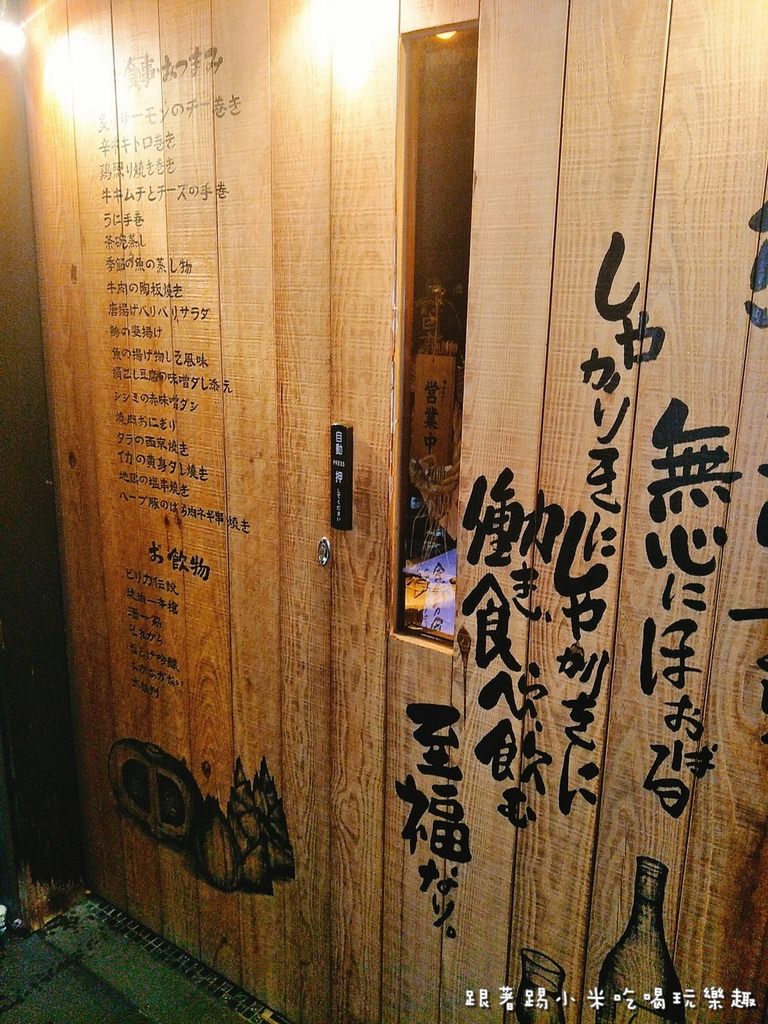 食事・おつまみ
炙りサーモンのチーズ巻き
キトロ巻き
鶏照り焼き巻き
牛キムチとチーズの手巻
うに手巻
茶碗蒸し
季節の魚の蒸し物
牛肉の陶板焼き
唐揚げパリパリサラダ
の姿揚げ
魚の揚げ物しそ風味
絹ごし豆腐の味噌ダレ添え
シジミの赤味噌ダシ
焼肉おにぎり
タラの西京焼き
イカの黄身ダレ焼き
地鶏の塩串焼き
ハーブ豚のばら肉ネギ串焼き
お飲物
ピリカ伝説
酒一筋
それから
大吟醸
自動
PRESS
押
してください
営業中
無心にほおばる
しゃかりきに
しゃかりきに
働き、
食べ、飲む
至福なり。
跟著踢小米吃喝玩樂趣